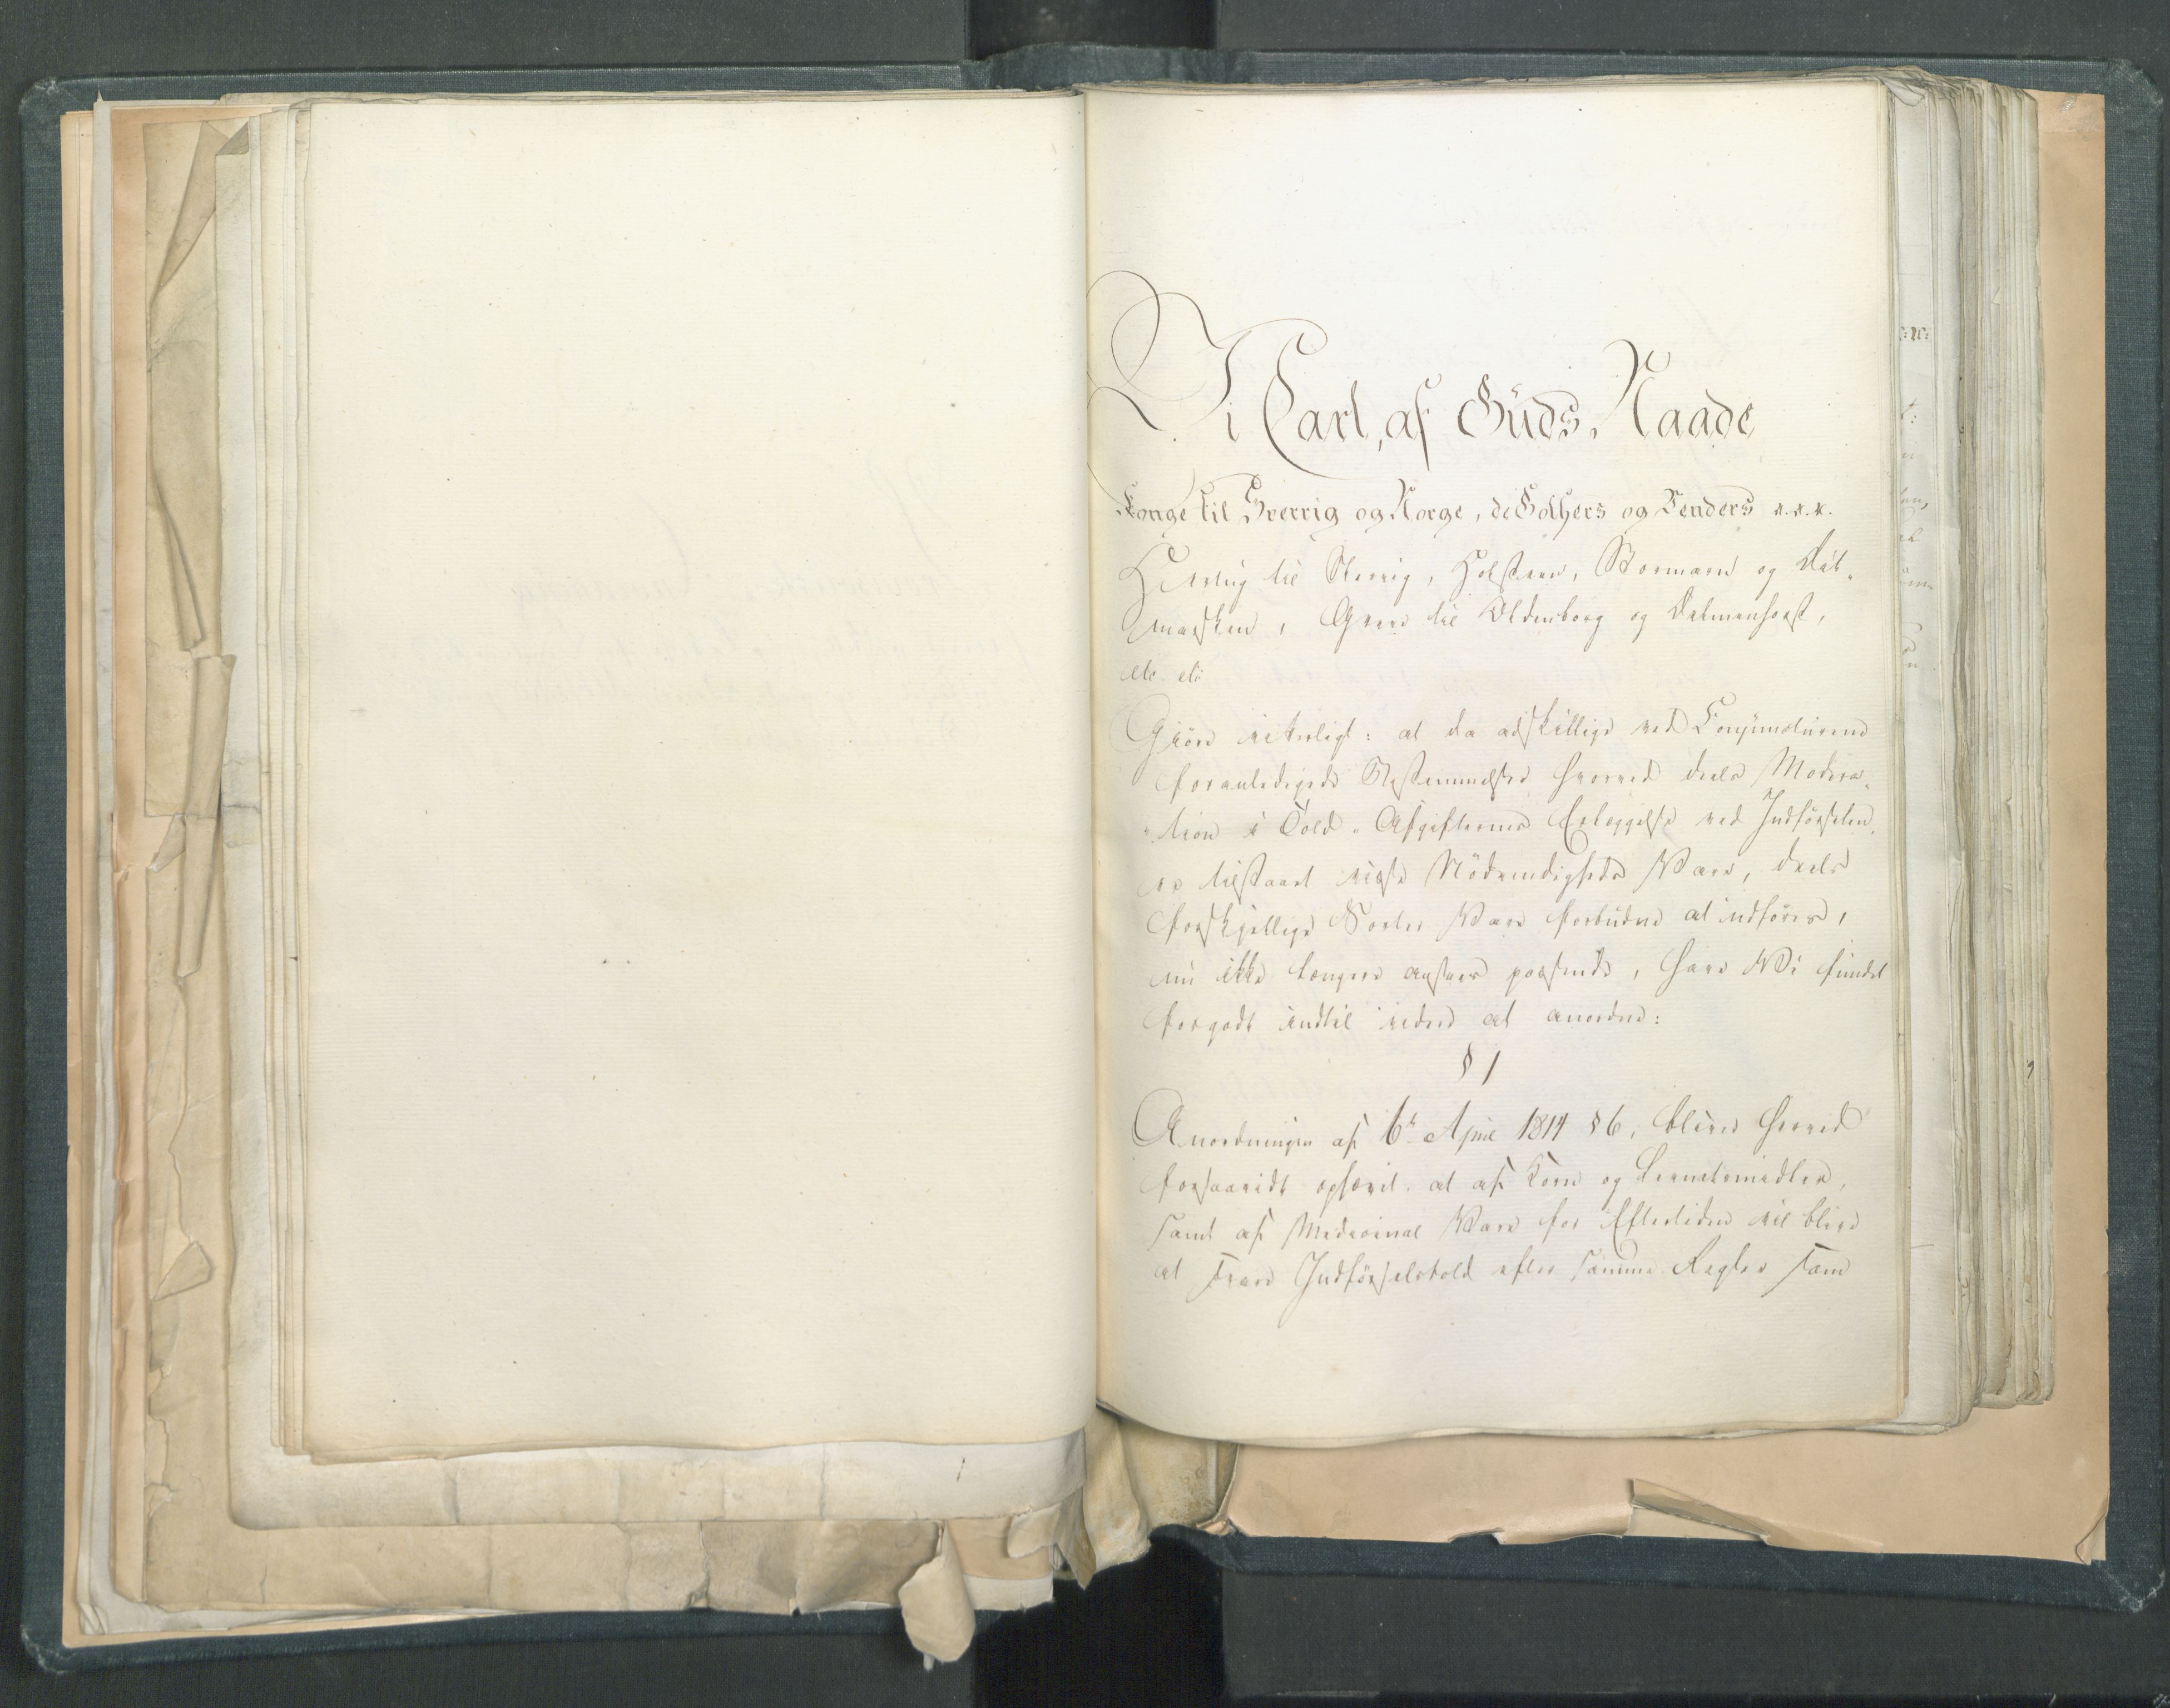 Vi Carl, af Guds Naade
Konge til Sverrig og Norge, de Gothers og Venders &.&.&.
Hertug til Slesvig, Holsteen, Stormarn og Dit-
marsken, Greve til Oldenborg og Delmenhorst,
etc etc
Giöre vitterligt: at da adskillige ved Conjuncturene
foranledigede Bestemmelser hvorved deels Modera-
"tion i Told-Afgifternes Erlæggelse ved Indförselen
er tilstaaet visse Nödvendigheds Vare, deels
forskjellige Sorter Vare forbudne at indföres,
nu ikke længere ansees passende, have Vi fundet
forgodt indtil videre at anordne:
§ 1
Anordningen af 6te April 1814 § 6, bliver herved
forsaavidt ophævet at af Korn og Levnetsmidler,
samt af Medicinal Vare for Eftertiden vil blive
at svare Indförselstold efter samme Regler som